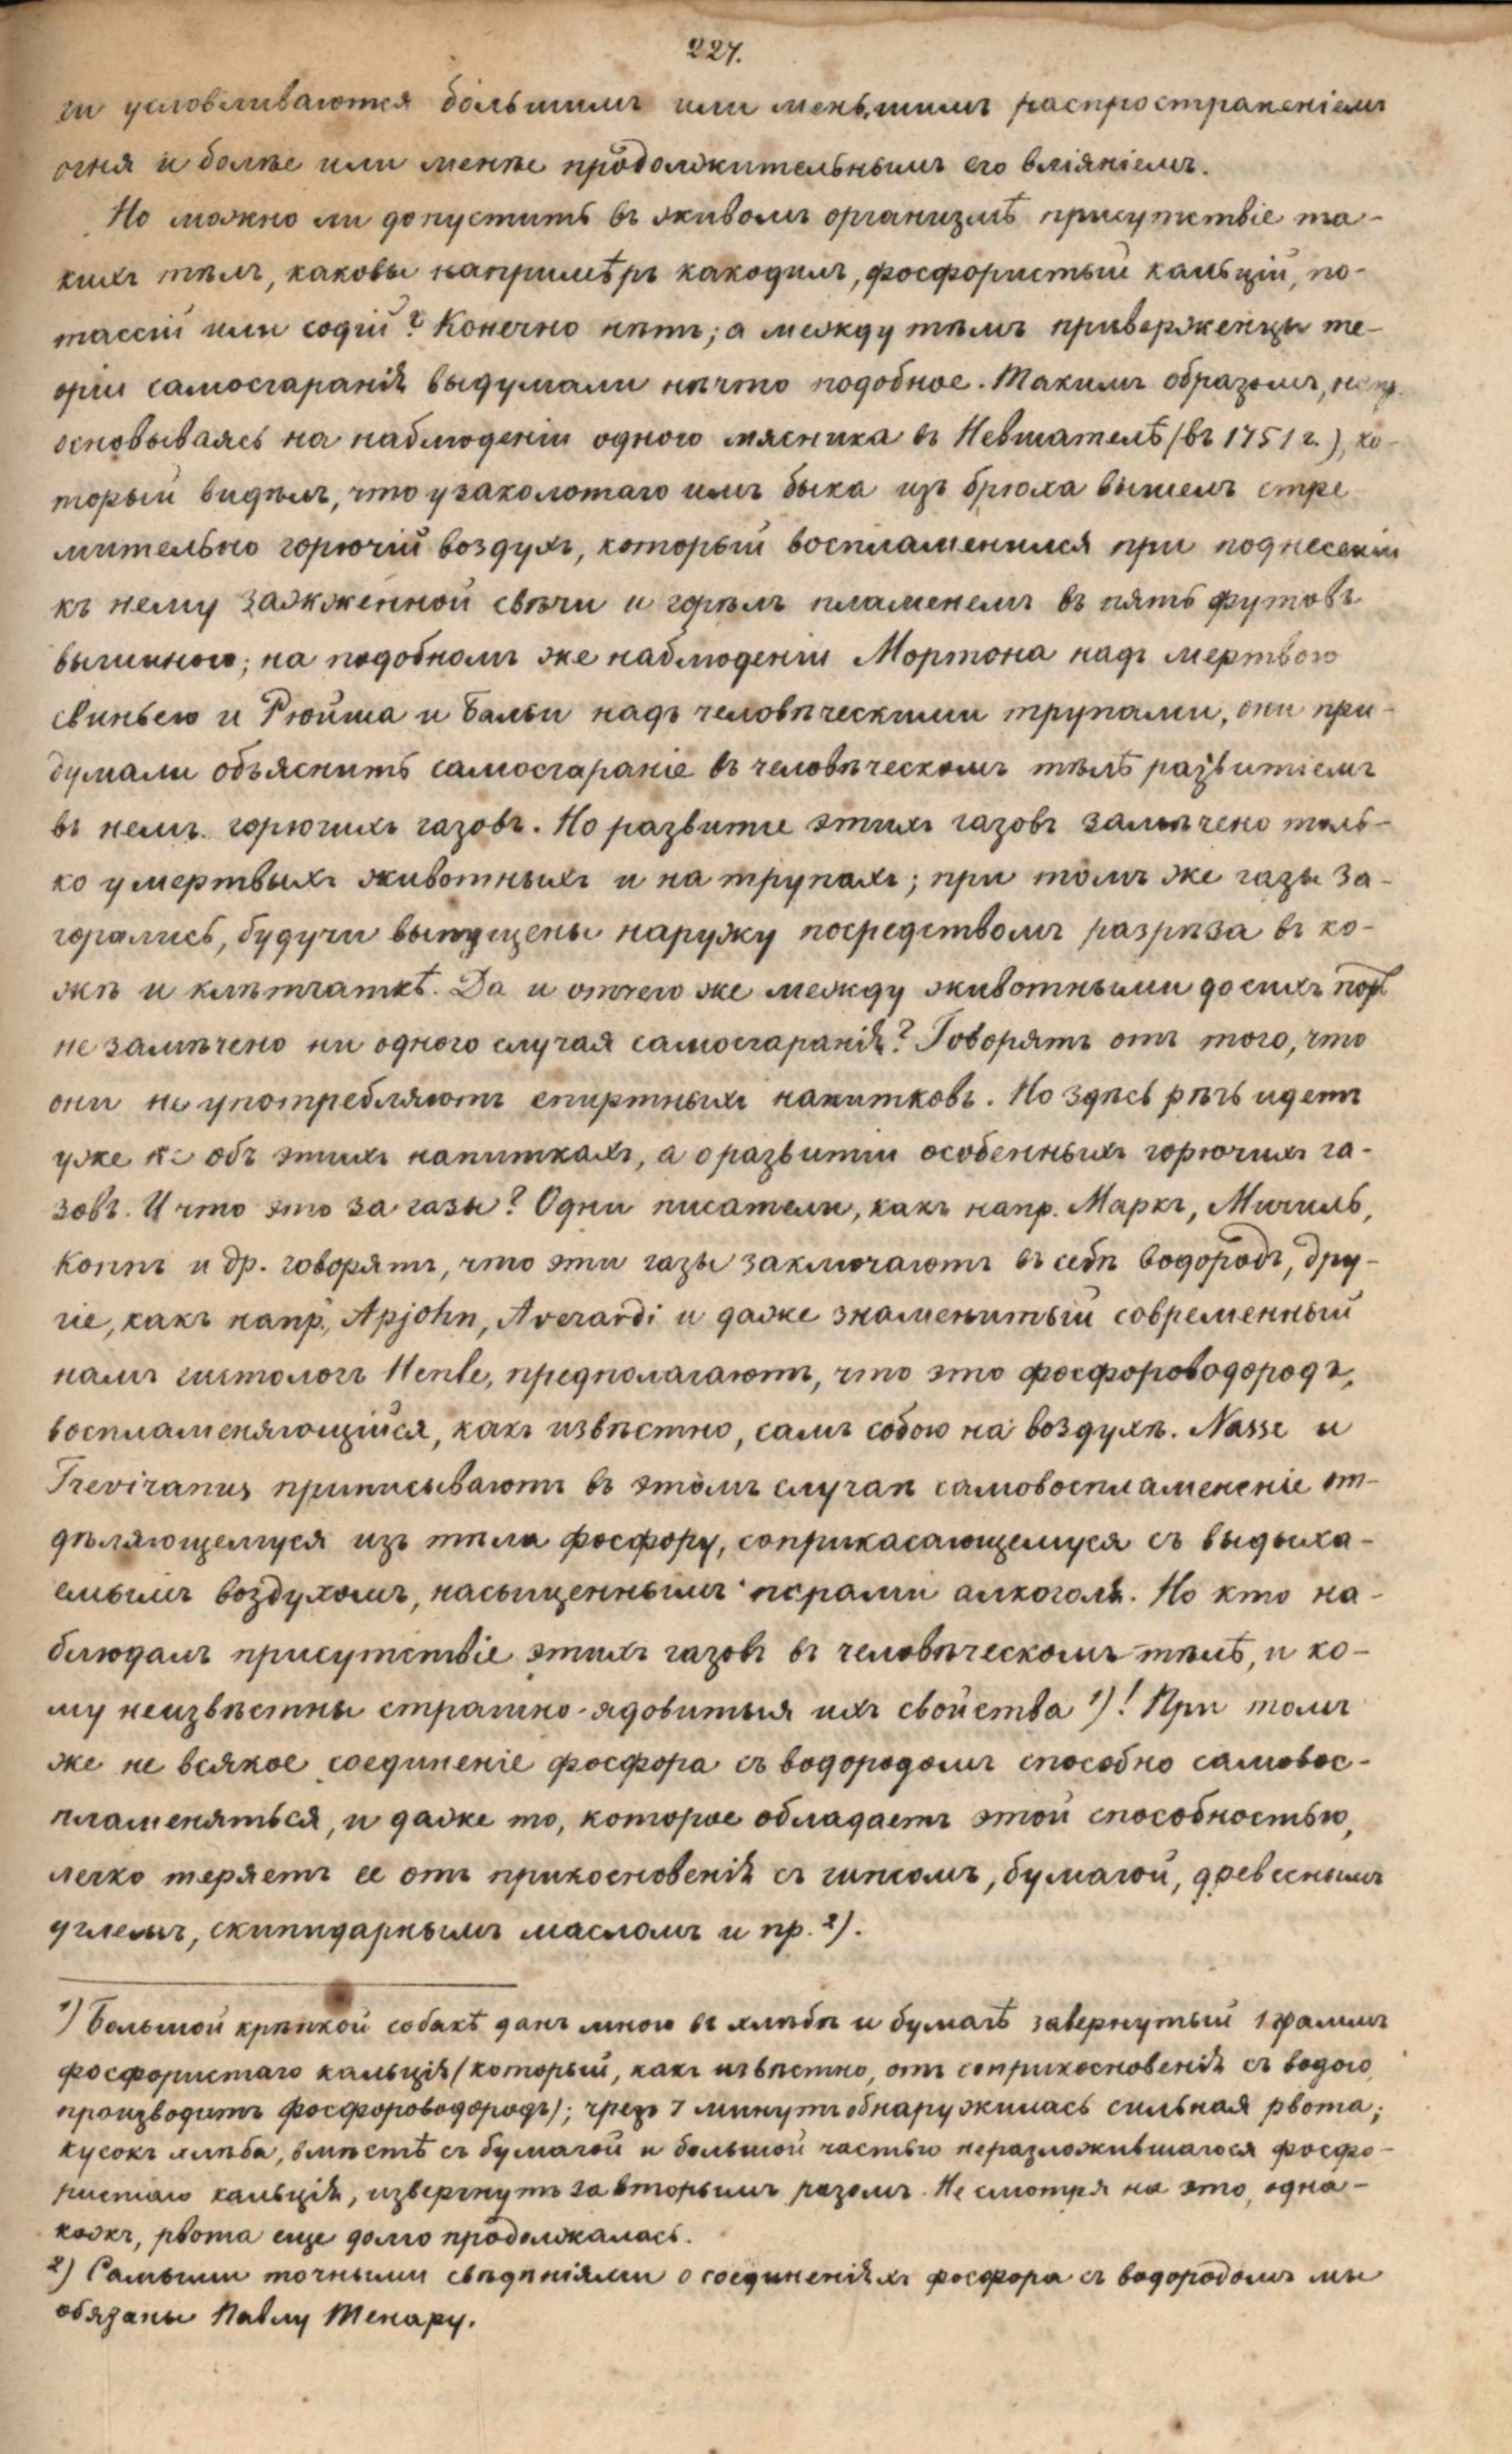 227.
ги условливаются большимъ или меньшимъ распространеніемъ
огня и болѣе или менѣе продолжительнымъ его вліяніемъ.
Но можно ли допустить въ живомъ организмѣ присутствіе та-
кихъ тѣлъ, каковы напримѣръ какодилъ, фосфористый кальцій, по-
тассій или содій? Конечно нѣтъ; а между тѣмъ приверженцы те-
оріи самосгаранія выдумали нѣчто подобное. Такимъ образомъ, напр.
основываясь на наблюденіи одного мясника въ Невшателѣ (въ 1751 г.), ко-
торый видѣлъ, что у заколотаго имъ быка изъ брюха вышелъ стре-
мительно горючій воздухъ, который воспламенился при поднесеніи
къ нему зажженной свѣчи и горѣлъ пламенемъ въ пять футовъ
вышиною; на подобномъ же наблюденіи Мортона надъ мертвою
свиньею и Рюйша и Бальи надъ человѣческими трупами, они при-
думали объяснить самосгараніе въ человѣческомъ тѣлѣ развитіемъ
въ немъ горючихъ газовъ. Но развитіе этихъ газовъ замѣчено толь-
ко у мертвыхъ животныхъ и на трупахъ; при томъ же газы за-
горались, будучи выпущены наружу посредствомъ разрѣза въ ко-
жѣ и клѣтчаткѣ. Да и отчего же между животными до сихъ поръ
не замѣчено ни одного случая самосгаранія? Говорятъ отъ того, что
они не употребляютъ спиртныхъ напитковъ. Но здѣсь рѣчь идетъ
уже не объ этихъ напиткахъ, а о развитіи особенныхъ горючихъ га-
зовъ. И что это за газы? Одни писатели, какъ напр. Маркъ, Мичиль,
Коппъ и др. говорятъ, что эти газы заключаютъ въ себѣ водородъ, дру-
гіе, какъ напр., Apjohn, Averardi и даже знаменитый современный
намъ гистологъ Henle, предполагаютъ, что это фосфороводородъ,
воспламеняющійся, какъ извѣстно, самъ собою на воздухѣ. Nasse и
Treviranus приписываютъ въ этомъ случаѣ самовоспламененіе от-
дѣляющемуся изъ тѣла фосфору, соприкасающемуся съ выдыха-
емымъ воздухомъ, насыщеннымъ парами алкоголя. Но кто на-
блюдалъ присутствіе этихъ газовъ въ человѣческомъ тѣлѣ, и ко-
му неизвѣстны страшно-ядовитыя ихъ свойства 1)! При томъ
же не всякое соединеніе фосфора съ водородомъ способно самовос-
пламеняться, и даже то, которое обладаетъ этой способностью,
легко теряетъ ее отъ прикосновенія съ гипсомъ, бумагой, древеснымъ
углемъ, скипидарнымъ масломъ и пр. 2).
1) Большой крѣпкой собакѣ данъ мною въ хлѣбѣ и бумагѣ завернутый 1 граммъ
фосфористаго кальція (который, какъ извѣстно, отъ соприкосновенія съ водою
производитъ фосфороводородъ); чрезъ 7 минутъ обнаружилась сильная рвота;
кусокъ хлѣба, вмѣстѣ съ бумагой и большой частью неразложившагося фосфо-
ристаго кальція, извергнутъ за вторымъ разомъ. Не смотря на это, одна-
кожъ, рвота еще долго продолжалась.
2) Самыми точными свѣдѣніями о соединеніяхъ фосфора съ водородомъ мы
обязаны Павлу Тенару.